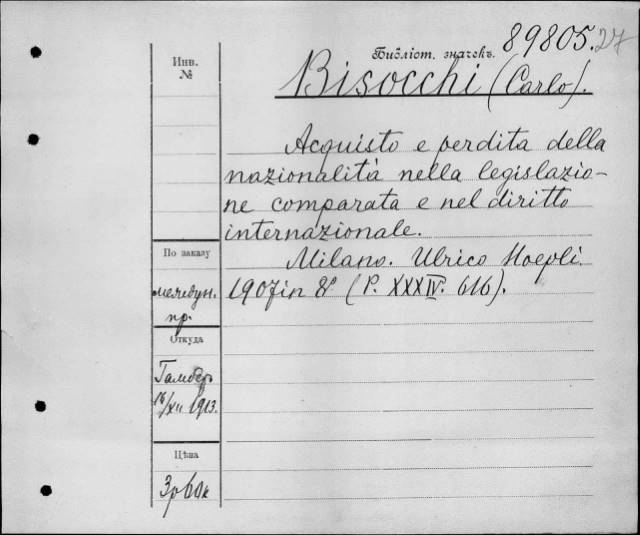 89805.27
Инв.
№
Библіот. значекъ.
Bisocchi (Carlo).
Acquisto e perdita della
nazionalità nella legislazio-
ne comparata e nel diritto
internazionale.
Milano. Ulrico Hoepli.
1907 in 8° (P. XXXIV. 616).
По заказу
междун.
пр.
Откуда
16/XII 1913.
Цѣна
3р60к